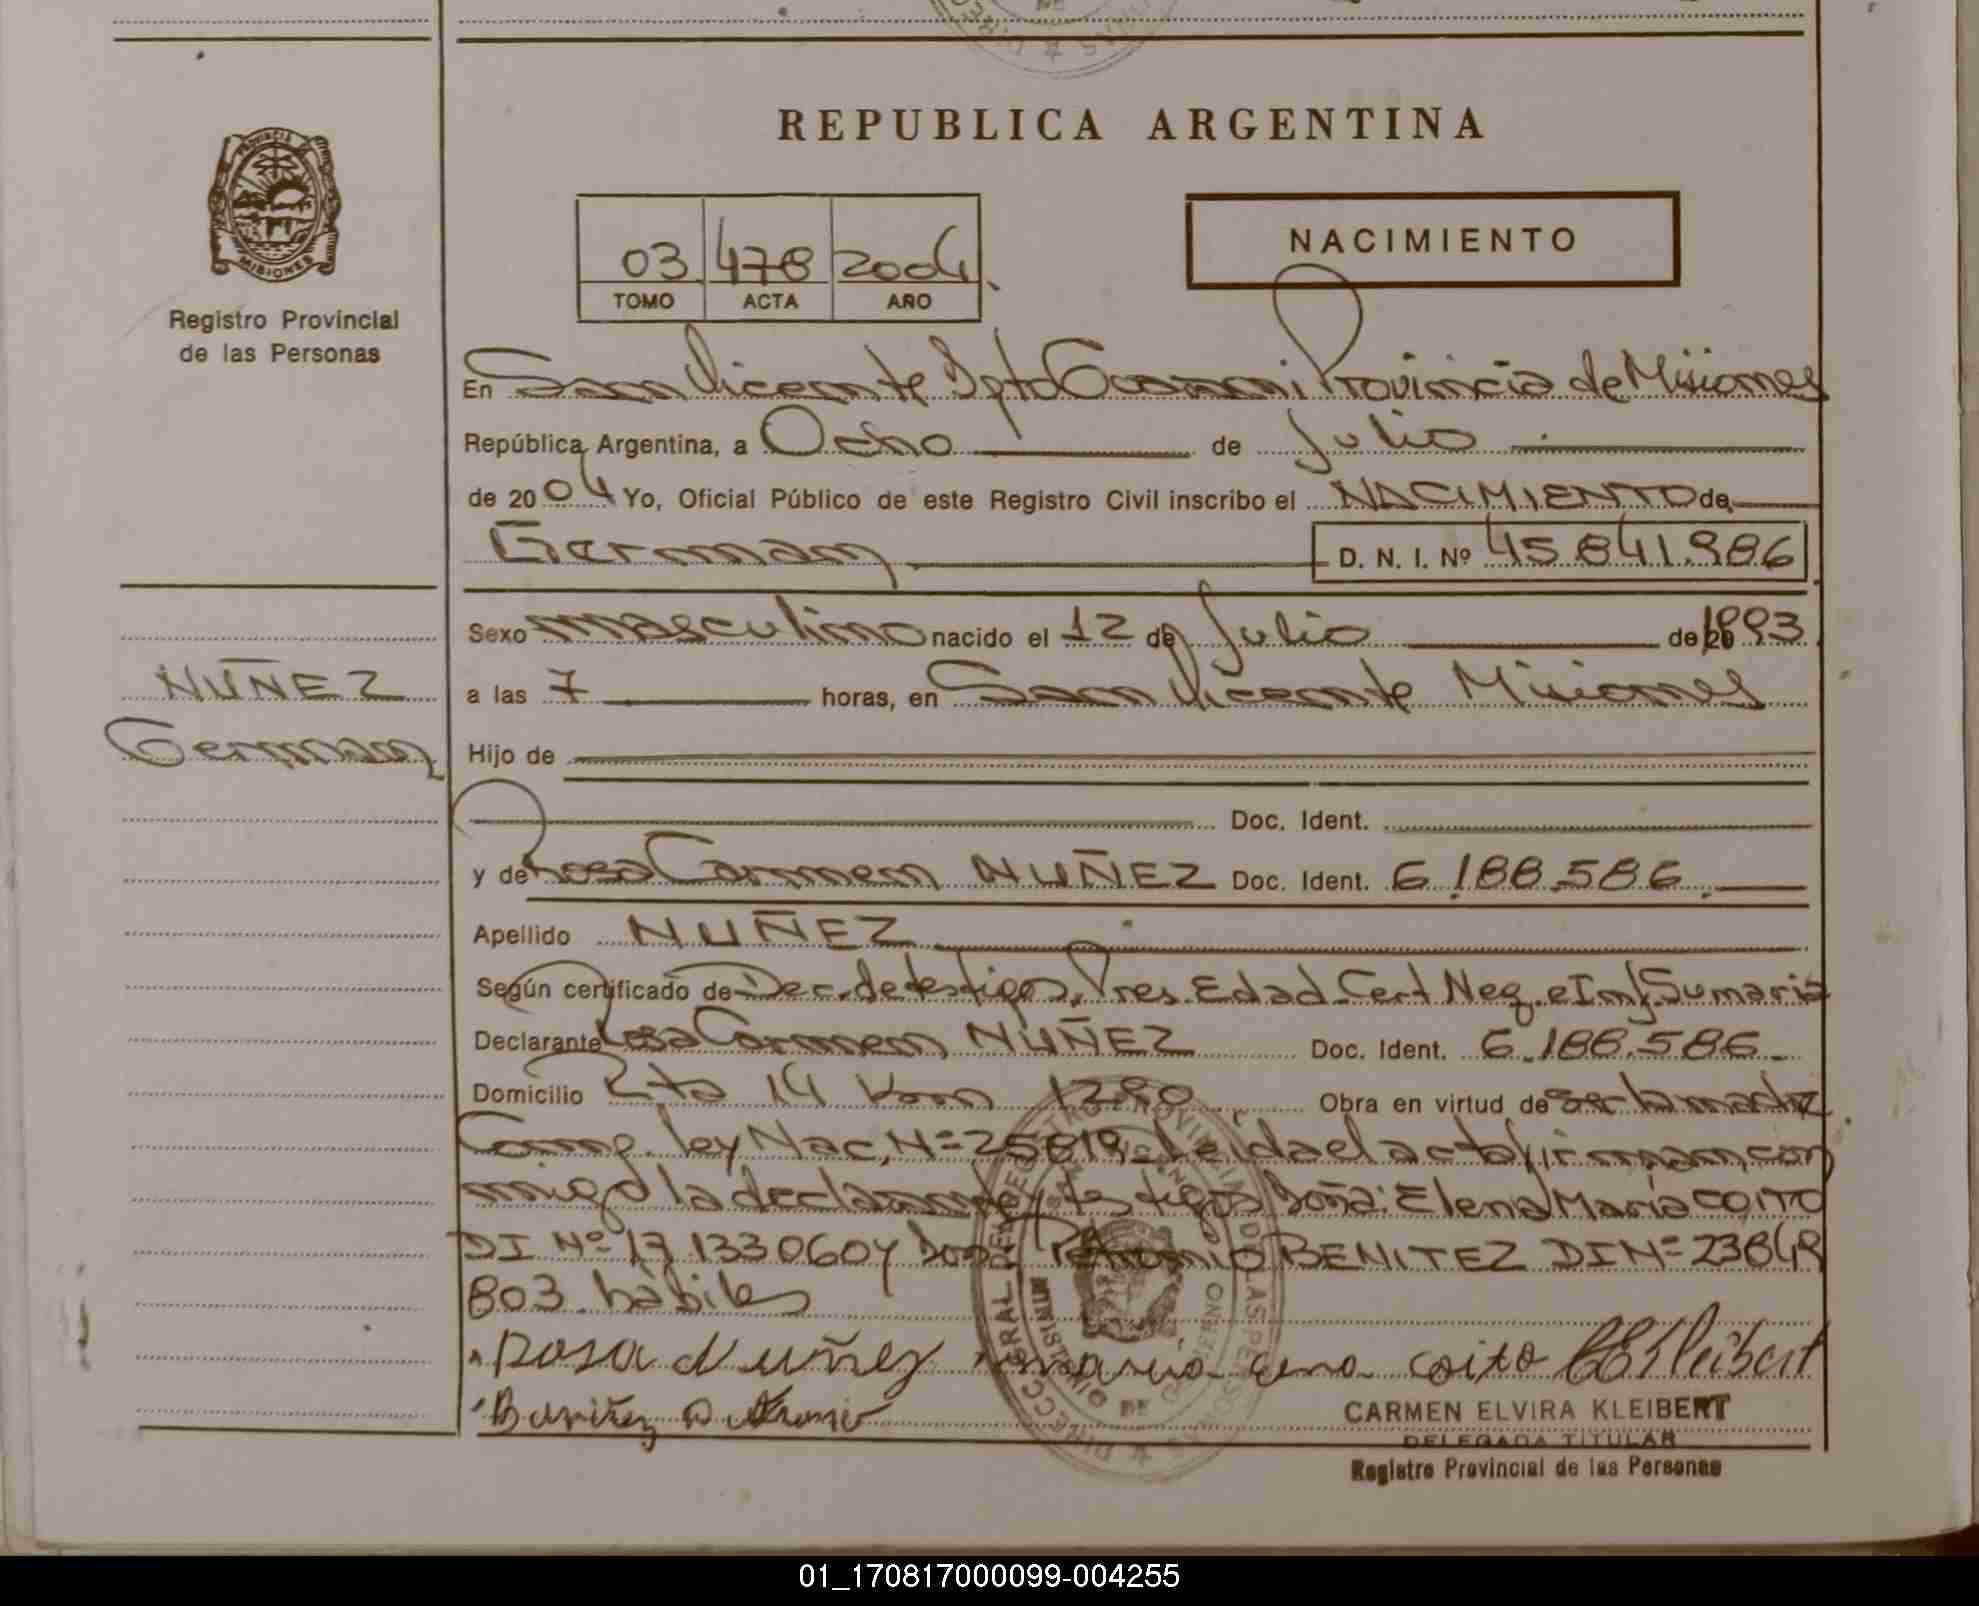 REPUBLICA ARGENTINA
PROVINCIA
MISIONES
Registro Provincial
de las Personas
03 478 2004
TOMO ACTA AÑO
NACIMIENTO
En San Vicente Dpto Guarani Provincia de Misiones
República Argentina, a Ocho de Julio
de 2004 Yo, Oficial Público de este Registro Civil inscribo el NACIMIENTO de
German D. N. I. Nº 45.841.986
Sexo masculino nacido el 12 de Julio de 1993
NUÑEZ
a las 7 horas, en San Vicente Misiones
German
Hijo de
Doc. Ident.
y de Rosa Carmen NUÑEZ Doc. Ident. 6.188.586.
Apellido NUÑEZ
Según certificado de Dec. de testigos, Pres. Edad Cert Neg. e Inf. Sumaria
Declarante Rosa Carmen NUÑEZ Doc. Ident. 6.188.586.
Domicilio Rta 14 Km 1290 Obra en virtud de ser la madre
Comp. ley Nac. Nº 25819 Leída el acta firman con
migo la declarante y testigos Doña: Elena Maria COITO
DI Nº 17133060 y Don: BENITEZ DI Nº 23849
803 hàbiles
Rosa Nuñez coito CEKleibert
CARMEN ELVIRA KLEIBERT
DELEGADA TITULAR
Registro Provincial de las Personas
01_170817000099-004255